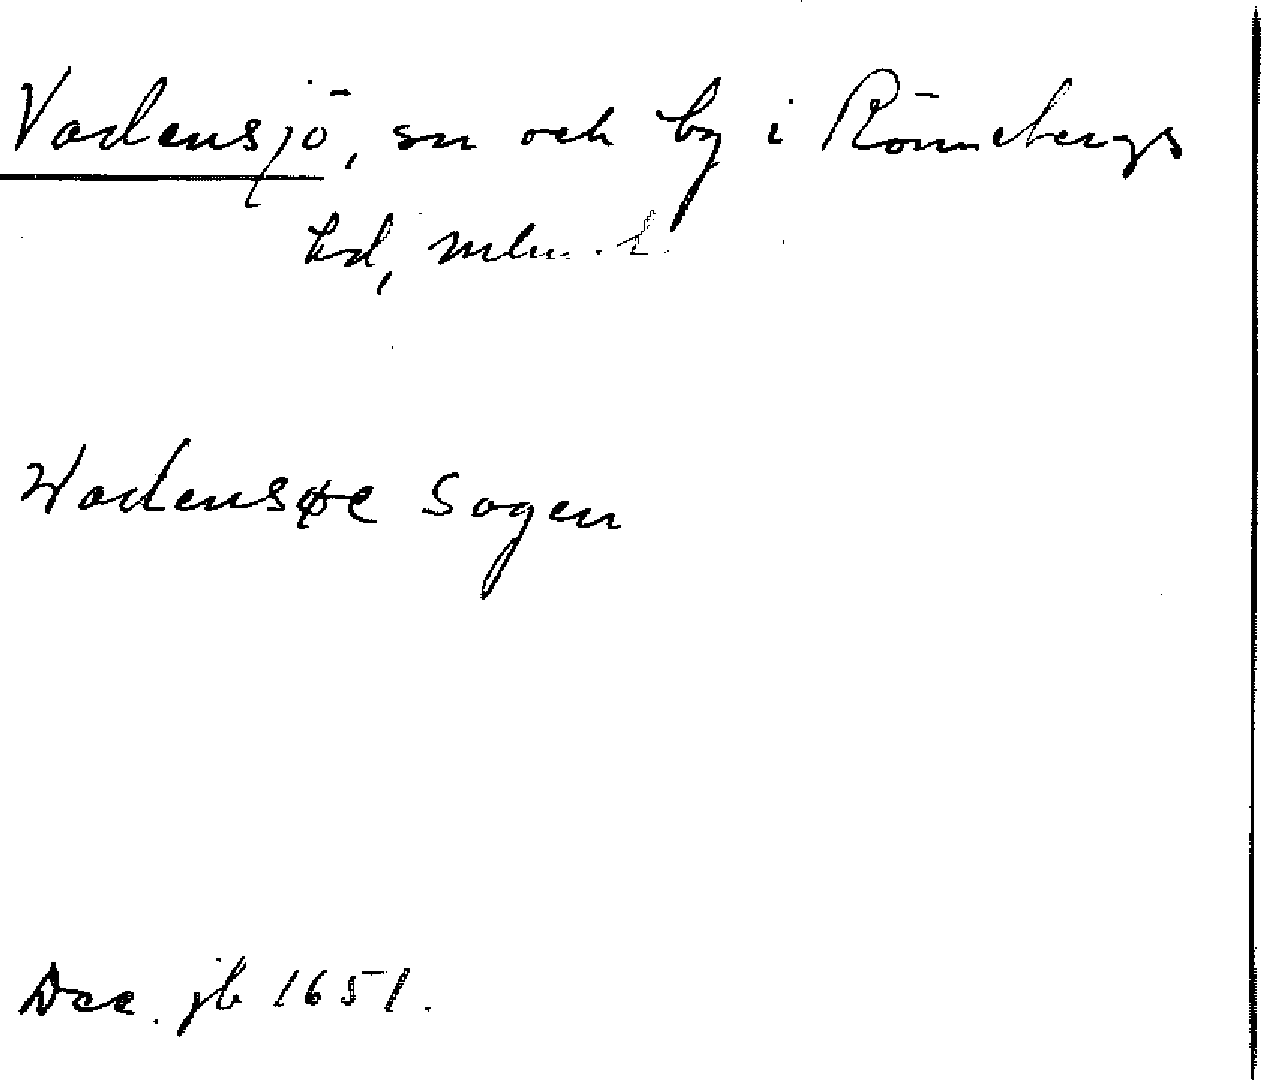 Vadensjö, sn och by i Rönnebergs
hd, Mlm. l.
Wadensøe Sogen
Dec. jb 1651.